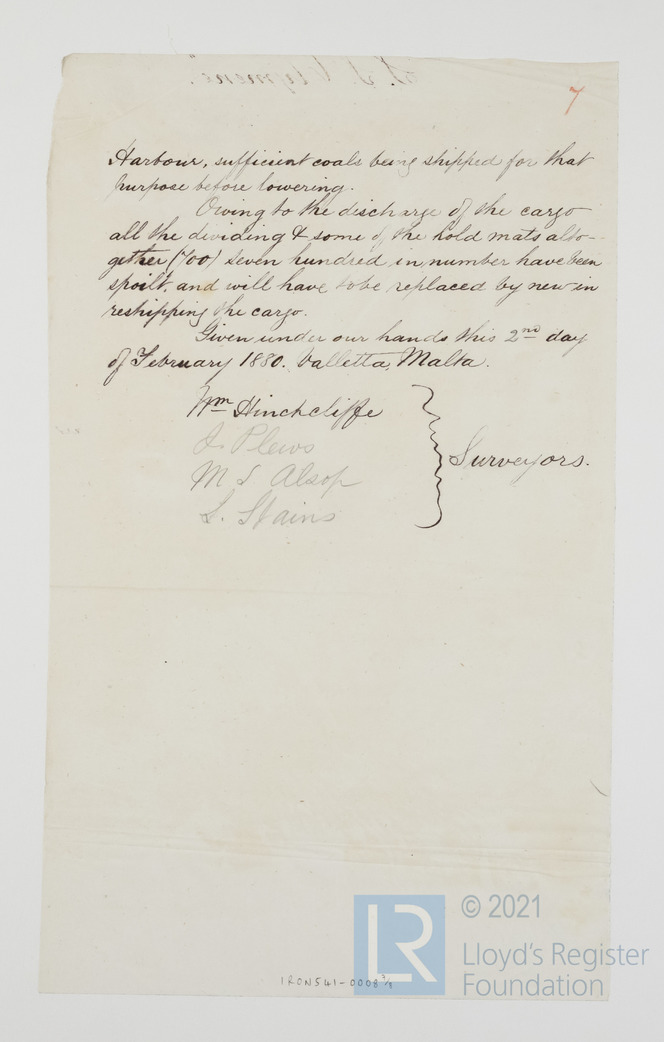 7
Harbour, sufficient coals being shipped for that
purpose before lowering.
Owing to the discharge of the cargo
all the dividing & some of the hold mats alto-
gether (700) seven hundred in number have been
spoilt, and will have to be replaced by new in
reshipping the cargo.
Given under our hands this 2nd day
of February 1880. Valletta, Malta.
Wm Hinchcliffe
J. Plews
M S Alsop
S. Stains
Surveyors.
IRON541-0008 3/4
LR
© 2021
Lloyd's Register
Foundation